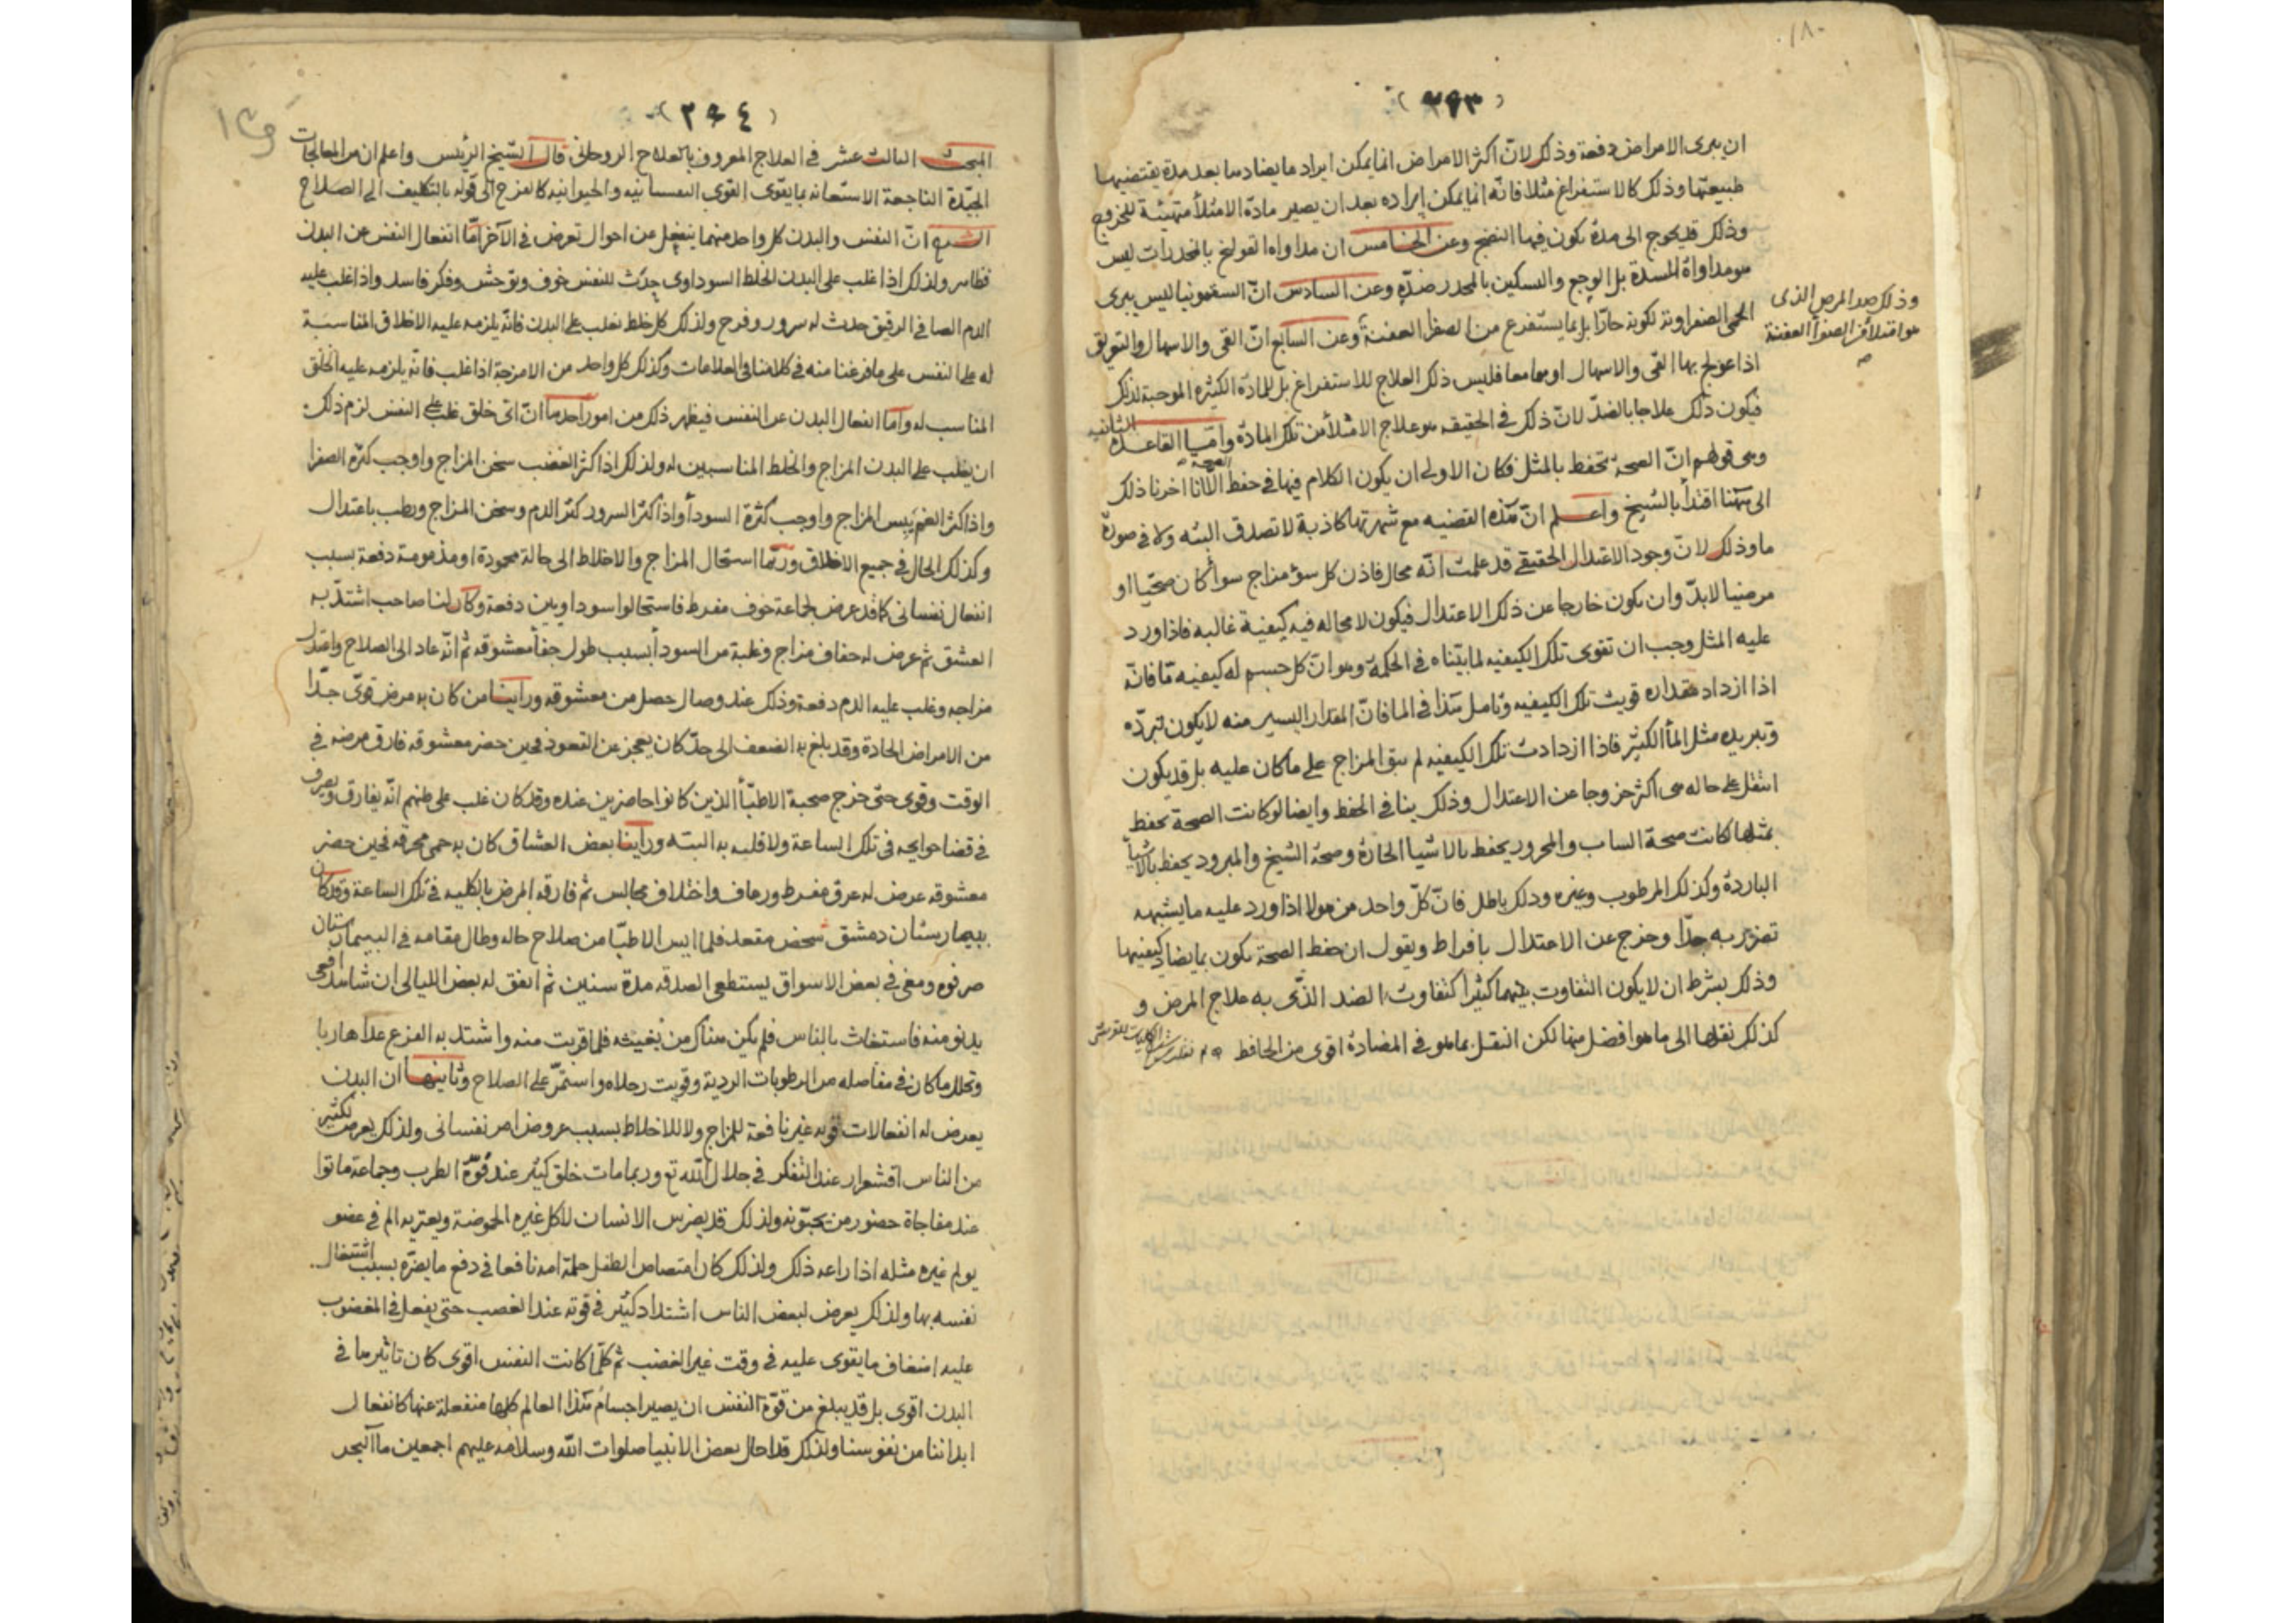 ١٨٠
(٣٩٣)
ان يبرى الامراض دفعة وذلك لانّ اكثر الامراض انما يمكن ايراد مايضادها بعد مدة يقتضيها
طبيعتها وذلك كالاستفراغ مثلا فانّه انما يمكن ايراده بعد ان يصير مادة الامتلأ متهيئة للخروج
وذلك قد يحوج الى مدة يكون فيها النضج وعن الخامس ان مداواه القولنج بالمخدرات ليس
هو مداواة للسدة بل الوجع والتسكين بالمخدر ضدّه وعن السادس انّ السقمونيا ليس يبرى
الحمى الصفراوية لكونه حارّا بل بما يستفرغ من الصفرأ العفنة وعن السابع انّ القى والاسهال والتعريق
وذلك ضد المرض الذى
هو امتلأ من الصفرأ العفنة
اذا عولج بها القى والاسهال او هما معا فليس ذلك العلاج للاستفراغ بل للمادة الكثيره الموجبة لذلك
فيكون ذلك علاجا بالضدّ لانّ ذلك فى الحقيقه هو علاج الامتلأ من تلك المادّة وامّا القاعدة الثانيه
وهى قولهم انّ الصحة تحفظ بالمثل فكان الاولى ان يكون الكلام فيها فى حفظ الصحة الا انا اخرنا ذلك
الى هٓهنا اقتدأ بالشيخ واعلم انّ هٓذه القضيه مع شهرتها كاذبة لا تصدق البته ولا فى صورة
ما وذلك لانّ وجود الاعتدال الحقيقى قد علمت انّه محال فاذن كل سؤ مزاج سوأ كان صحّيا او
مرضيا لابدّ وان يكون خارجا عن ذلك الاعتدال فيكون لا محاله فيه كيفية غالبه فاذا ورد
عليه المثل وجب ان تقوى تلك الكيفيه لما بيّناه فى الحكمة وهو انّ كل جسم له كيفيه مّا فانّه
اذا ازداد مقداره قويت تلك الكيفيه وتامل هٓذا فى الما فانّ المقدار اليسير منه لا يكون تبرّده
وتبريده مثل المأ الكثير فاذا ازدادت تلك الكيفيه لم يبق المزاج على ما كان عليه بل قد يكون
انتقل على حاله هى اكثر خروجا عن الاعتدال وذلك ينافى الحفظ وايضا لو كانت الصحة تحفظ
بمثلها كانت صحة الساب والمحرور يحفظ بالاشيا الحارة وصحة الشيخ والمبرود يحفظ بالاشيأ
الباردة وكذلك المرطوب وغيره ودلك باطل فانّ كلّ واحد من هولا اذا ورد عليه ما يشبهه
تضرّر به جدّا وخرج عن الاعتدال بافراط ويقول ان حفظ الصحة يكون بما يضاد كيفيتها
وذلك بشرط ان لا يكون التفاوت بينهما كثيرا كتفاوت الضد الذّى به علاج المرض و
كذلك نقلها الى ما هو افضل منها لكن النقل بما هو فى المضادة اقوى من الحافظ
(٣٩٤)
المبحث الثالث عشر فى العلاج المعروف بالعلاج الروحانى قال الشيخ الرئيس واعلم ان من المعالجات
الجيّدة الناجعة الاستعانه بما يقوى القوى النفسانيه والحيوانيه كالفرح الى قوله بالتكليف الى الصلاح
الشرح انّ النفس والبدن كل واحد منهما ينفعل عن احوال تعرض فى الآخر امّا انفعال النفس عن البدن
فظاهر ولذلك اذا غلب على البدن الخلط السوداوى حدث للنفس خوف وتوحش وفكر فاسد واذا غلب عليه
الدم الصافى الرقيق حدث له سرور وفرح ولذلك كل خلط يغلب على البدن فانّه يلزمه عليه الاخلاق المناسبة
له على النفس على ما فرغنا منه فى كلامنا فى العلامات وكذلك كل واحد من الامزجة اذا غلب فانّه يلزمه عليه الخلق
المناسب له وامّا انفعال البدن عن النفس فيظهر ذلك من امور احدها انّ اىّ خلق غلب على النفس لزم ذلك
ان يغلب على البدن المزاج والخلط المناسبين له ولذلك اذا كثر الغضب سخن المزاج واوجب كثرة الصفرا
واذا كثر الغم يبس المزاج واوجب كثرة السودأ واذا كثر السرور كثر الدم وسخن المزاج ورطب باعتدال
وكذلك الحال فى جميع الاخلاق وربّما استحال المزاج والاخلاط الى حالة محمودة او مذمومة دفعة بسبب
انفعال نفسانى كما قد عرض لجماعة خوف مفرط فاستحالوا سوداويين دفعة وكان لنا صاحب اشتدّ به
العشق ثم عرض له جفاف مزاج وغلبة من السودأ بسبب طول جفأ معشوقه ثم انّه عاد الى الصلاح واعتدل
مزاجه وغلب عليه الدم دفعة وذلك عند وصال حصل من معشوقه وراينا من كان به مرض قوىّ جدّا
من الامراض الحادة وقد بلغ به الضعف الى حدّ كان يعجز عن القعود فحين حضر معشوقه فارق مرضه فى
الوقت وقوى حتى خرج صحبة الاطبّأ الذين كانوا حاضرين عنده وقد كان غلب على ظنهم انّه يفارق
فى قضا حوايجه فى تلك الساعة ولا قلبه به البته وراينا بعض العشاق كان به حمى محرقه فحين حضر
معشوقه عرض له عرق مفرط ورعاف واختلاف مجالس ثم فارقه المرض بالكليه فى تلك الساعة وقد كان
ببيمارستان دمشق شخص مقعد فلما ايس الاطبّا من صلاح حاله وطال مقامه فى البيمارستان
صرفوه ومضى فى بعض الاسواق يستطعى الصدقه مدة سنين ثم اتفق له بعض الليالى ان شاهد افعى
يدنو منه فاستغاث بالناس فلم يكن هناك من يغيثه فلما قربت منه واشتد به الفزع عدا هاربا
وتحلل ما كان فى مفاصله من الرطوبات الردية وقويت رجلاه واستمرّ على الصلاح وثانيها ان البدن
يعرض له انفعالات قويه غير نافعة للمزاج ولا للاخلاط بسبب عروض امر نفسانى ولذلك يعرض لكثير
من الناس اقشعرار عند التفكر فى جلال الله تع وربما مات خلق كثير عند قوّة الطرب وجماعة ماتوا
عند مفاجاة حضور من يحبّونه ولذلك قد يضرس الانسان لاكل غيره الحموضة ويعتريه الم فى عضو
يولم غيره مثله اذا راعه ذلك ولذلك كان امتصاص الطفل حلمة امه نافعا فى دفع ما يضرّه بسبب اشتغال
نفسه بها ولذلك يعرض لبعض الناس اشتداد كثير فى قوته عند الغضب حتى يفعل فى المغضوب
عليه اضعاف ما يقوى عليه فى وقت غير الغضب ثم كلّما كانت النفس اقوى كان تاثيرها فى
البدن اقوى بل قد يبلغ من قوّة النفس ان يصير اجسام هٓذا العالم كلها منفعلة عنها كانفعال
ابداننا من نفوسنا ولذلك قد احال بعض الانبيا صلوات الله وسلامه عليهم اجمعين مأ البحر